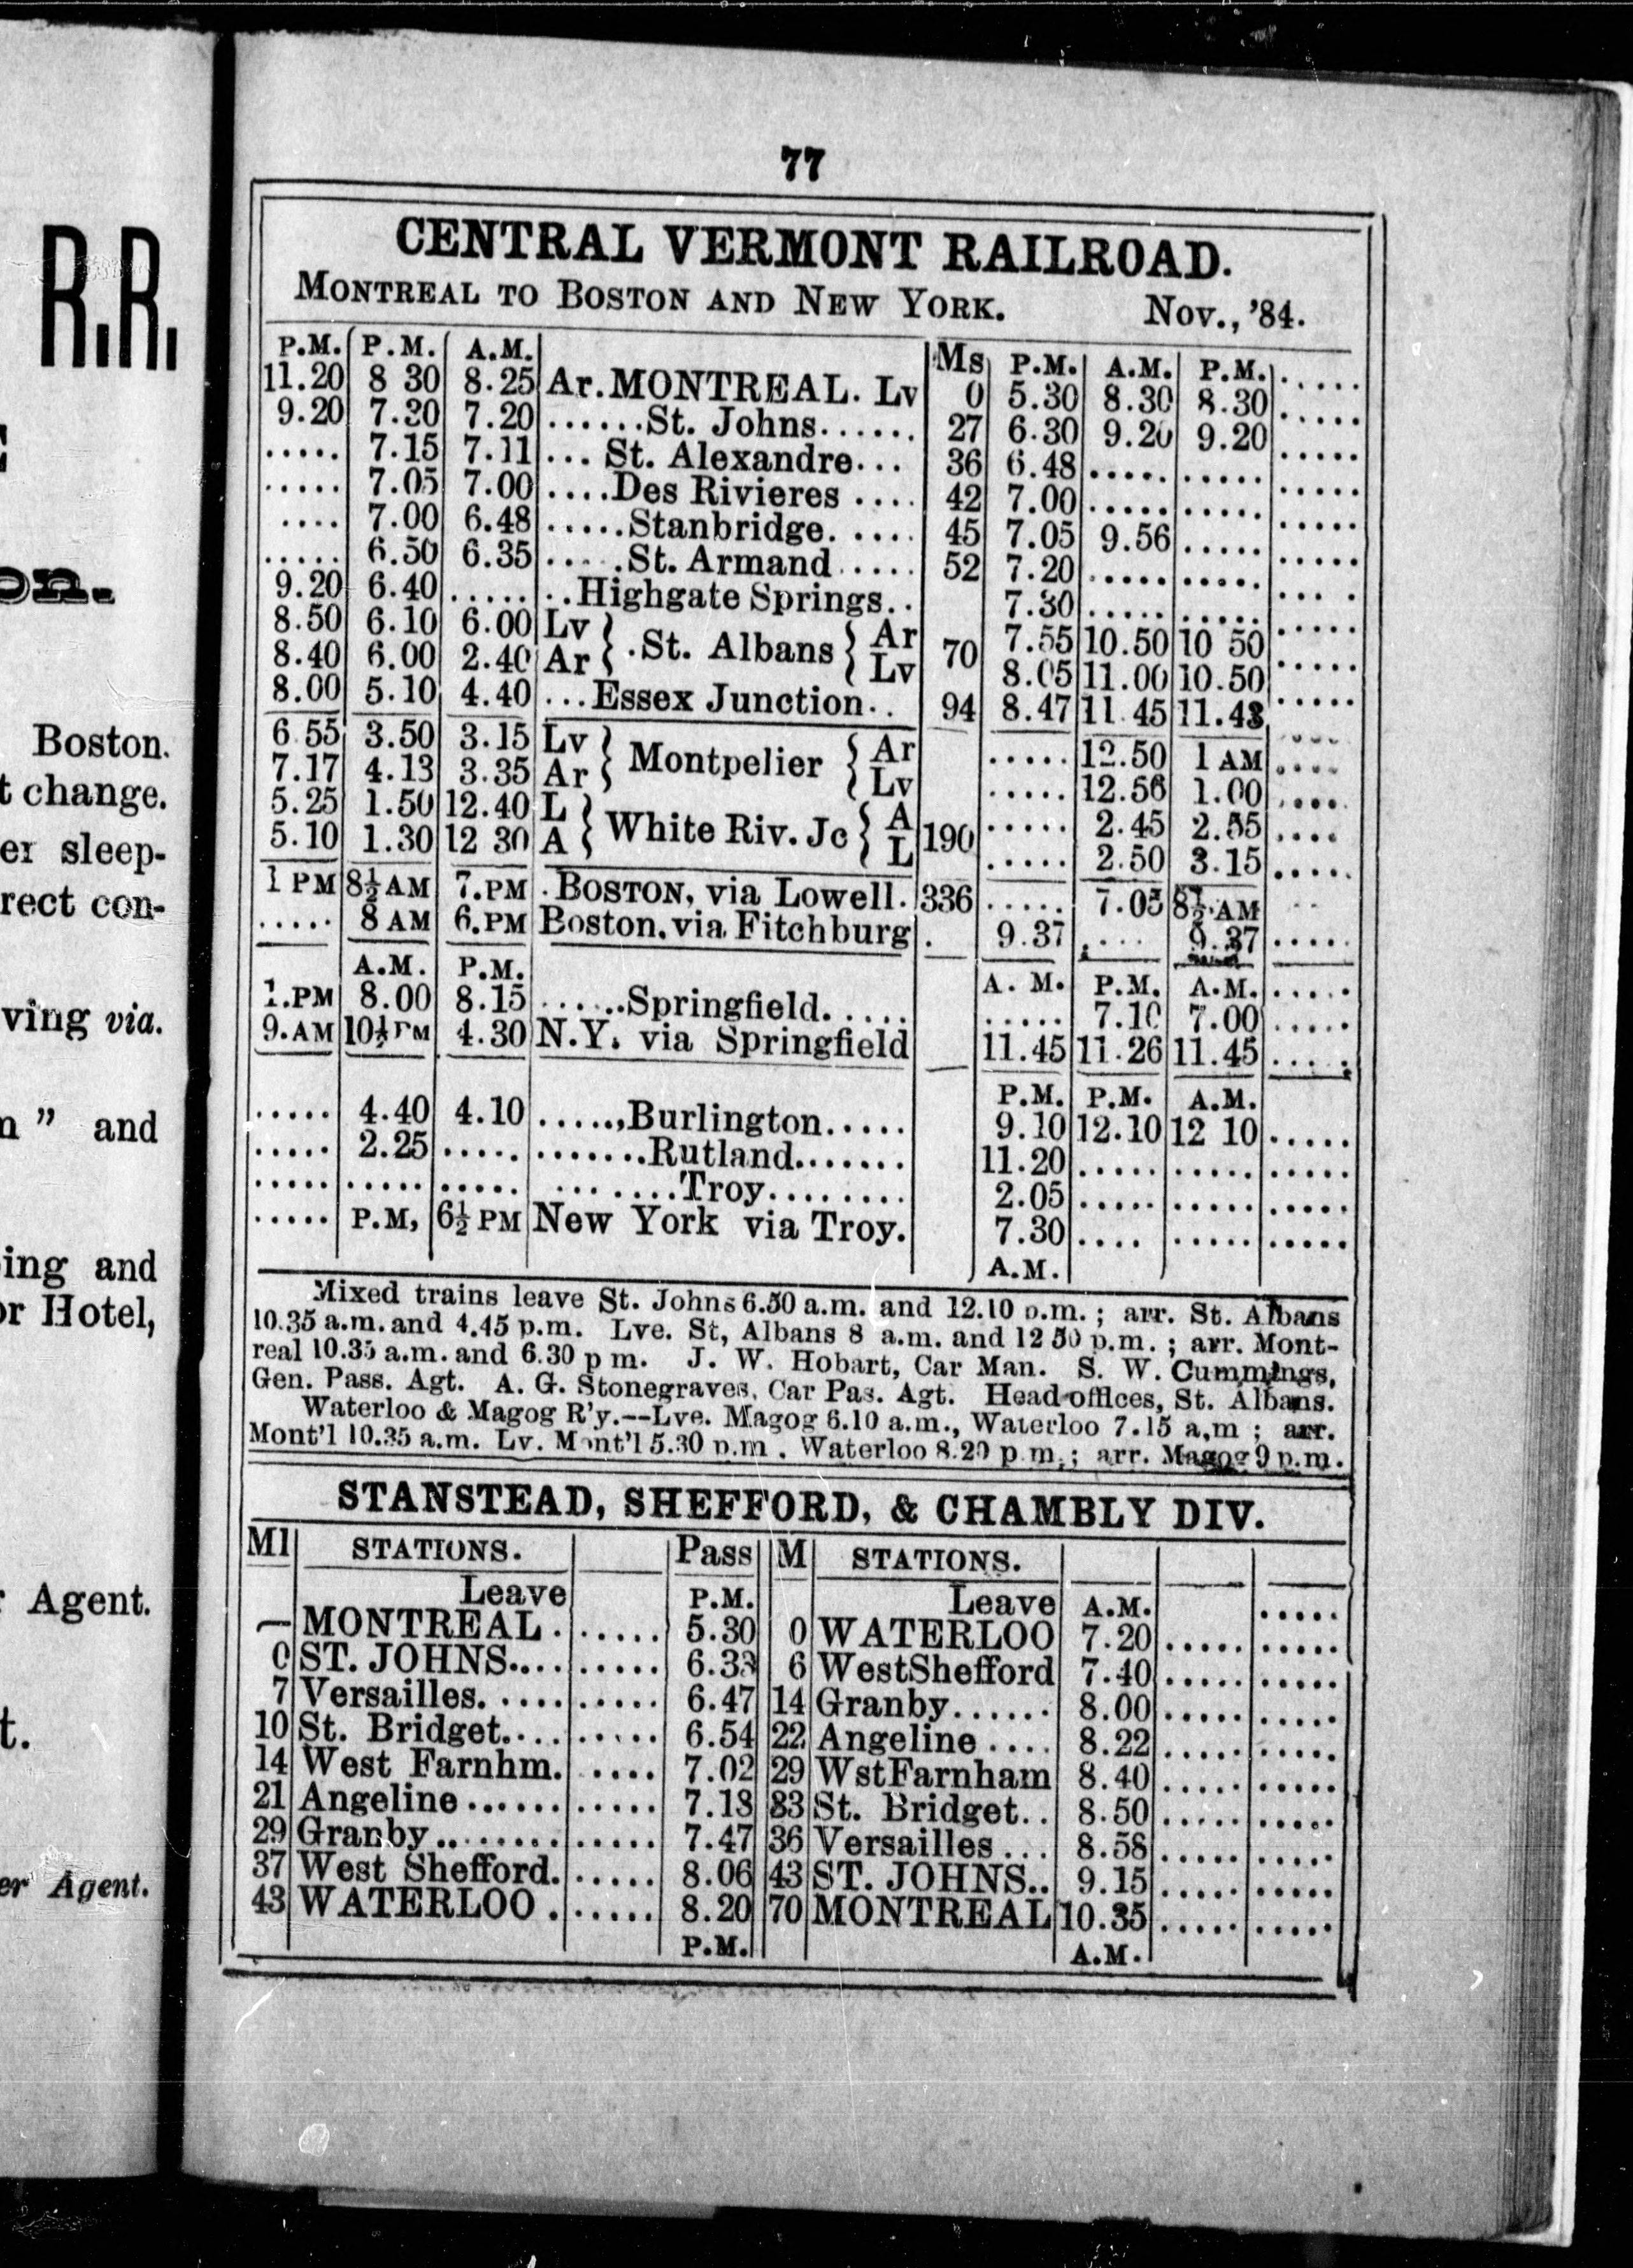 R.R.
on.
Boston.
t change.
er sleep-
rect con-
ving via.
n " and
ing and
or Hotel,
r Agent.
t.
er Agent.
77
CENTRAL VERMONT RAILROAD.
MONTREAL TO BOSTON AND NEW YORK. Nov., '84.
P.M. P.M. A.M. Ms P.M. A.M. P.M. .....
11.20 8 30 8.25 Ar. MONTREAL. Lv 0 5.30 8.30 8.30 .....
9.20 7.30 7.20 ......St. Johns...... 27 6.30 9.20 9.20 .....
..... 7.15 7.11 ... St. Alexandre... 36 6.48 ..... ..... .....
..... 7.05 7.00 ....Des Rivieres .... 42 7.00 ..... ..... .....
.... 7.00 6.48 .....Stanbridge. .... 45 7.05 9.56 ..... .....
..... 6.50 6.35 .....St. Armand..... 52 7.20 ..... ..... .....
9.20 6.40 ..... ..Highgate Springs.. 7.30 ..... ..... .....
8.50 6.10 6.00 Lv } .St. Albans { Ar 70 7.55 10.50 10 50 .....
8.40 6.00 2.40 Ar } { Lv 8.05 11.00 10.50 .....
8.00 5.10 4.40 ...Essex Junction.. 94 8.47 11.45 11.43 .....
6 55 3.50 3.15 Lv } Montpelier { Ar ..... 12.50 1 AM ....
7.17 4.13 3.35 Ar } { Lv ..... 12.56 1.00 ....
5.25 1.50 12.40 L } White Riv. Jc { A 190 ..... 2.45 2.55 ....
5.10 1.30 12 30 A } { L ..... 2.50 3.15 .....
1 PM 8½ AM 7.PM . BOSTON, via Lowell. 336 ..... 7.05 8½ AM ..
..... 8 AM 6.PM Boston, via Fitchburg . 9.37 .... 9.37 .....
A.M. P.M. A. M. P.M. A.M. .....
1.PM 8.00 8.15 ......Springfield..... ..... 7.10 7.00 .....
9.AM 10½ PM 4.30 N.Y. via Springfield 11.45 11.26 11.45 .....
P.M. P.M. A.M.
..... 4.40 4.10 ......Burlington..... 9.10 12.10 12 10 .....
..... 2.25 ..... .......Rutland....... 11.20 ..... ..... .....
..... ..... ..... ... ....Troy........ 2.05 ..... ..... .....
..... P.M, 6½ PM New York via Troy. 7.30 .... ..... .....
A.M.
Mixed trains leave St. Johns 6.50 a.m. and 12.10 p.m. ; arr. St. Albans
10.35 a.m. and 4.45 p.m. Lve. St, Albans 8 a.m. and 12 50 p.m. ; arr. Mont-
real 10.35 a.m. and 6.30 p m. J. W. Hobart, Car Man. S. W. Cummings,
Gen. Pass. Agt. A. G. Stonegraves, Car Pas. Agt. Head offices, St. Albans.
Waterloo & Magog R'y.--Lve. Magog 6.10 a.m., Waterloo 7.15 a,m ; arr.
Mont'l 10.35 a.m. Lv. Mont'l 5.30 p.m . Waterloo 8.20 p m.; arr. Magog 9 p.m.
STANSTEAD, SHEFFORD, & CHAMBLY DIV.
Ml STATIONS. Pass M STATIONS.
Leave P.M. Leave A.M. .....
— MONTREAL. ..... 5.30 0 WATERLOO 7.20 ..... .....
0 ST. JOHNS.... ..... 6.33 6 WestShefford 7.40 ..... .....
7 Versailles. .... ..... 6.47 14 Granby...... 8.00 ..... .....
10 St. Bridget.... ..... 6.54 22 Angeline .... 8.22 ..... .....
14 West Farnhm. ..... 7.02 29 WstFarnham 8.40 ..... .....
21 Angeline...... ..... 7.18 33 St. Bridget.. 8.50 ..... .....
29 Granby......... ..... 7.47 36 Versailles ... 8.58 ..... .....
37 West Shefford. ..... 8.06 43 ST. JOHNS.. 9.15 ..... .....
43 WATERLOO . ..... 8.20 70 MONTREAL 10.35 ..... .....
P.M. A.M.